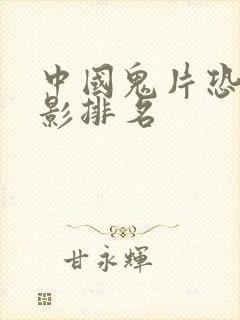 中國鬼片恐
影排名
甘永輝